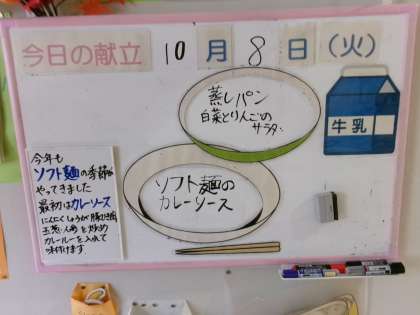 今日の献立 10月8日(火)
蒸しパン
白菜とりんごの
サラダ
牛乳
ソフト麺の
カレーソース
今年も
ソフト麺の季節が
やってきました
最初はカレーソース
にんにくしょうが豚ひき肉
玉葱・人参を炒め
カレールーを入れて
味付けます